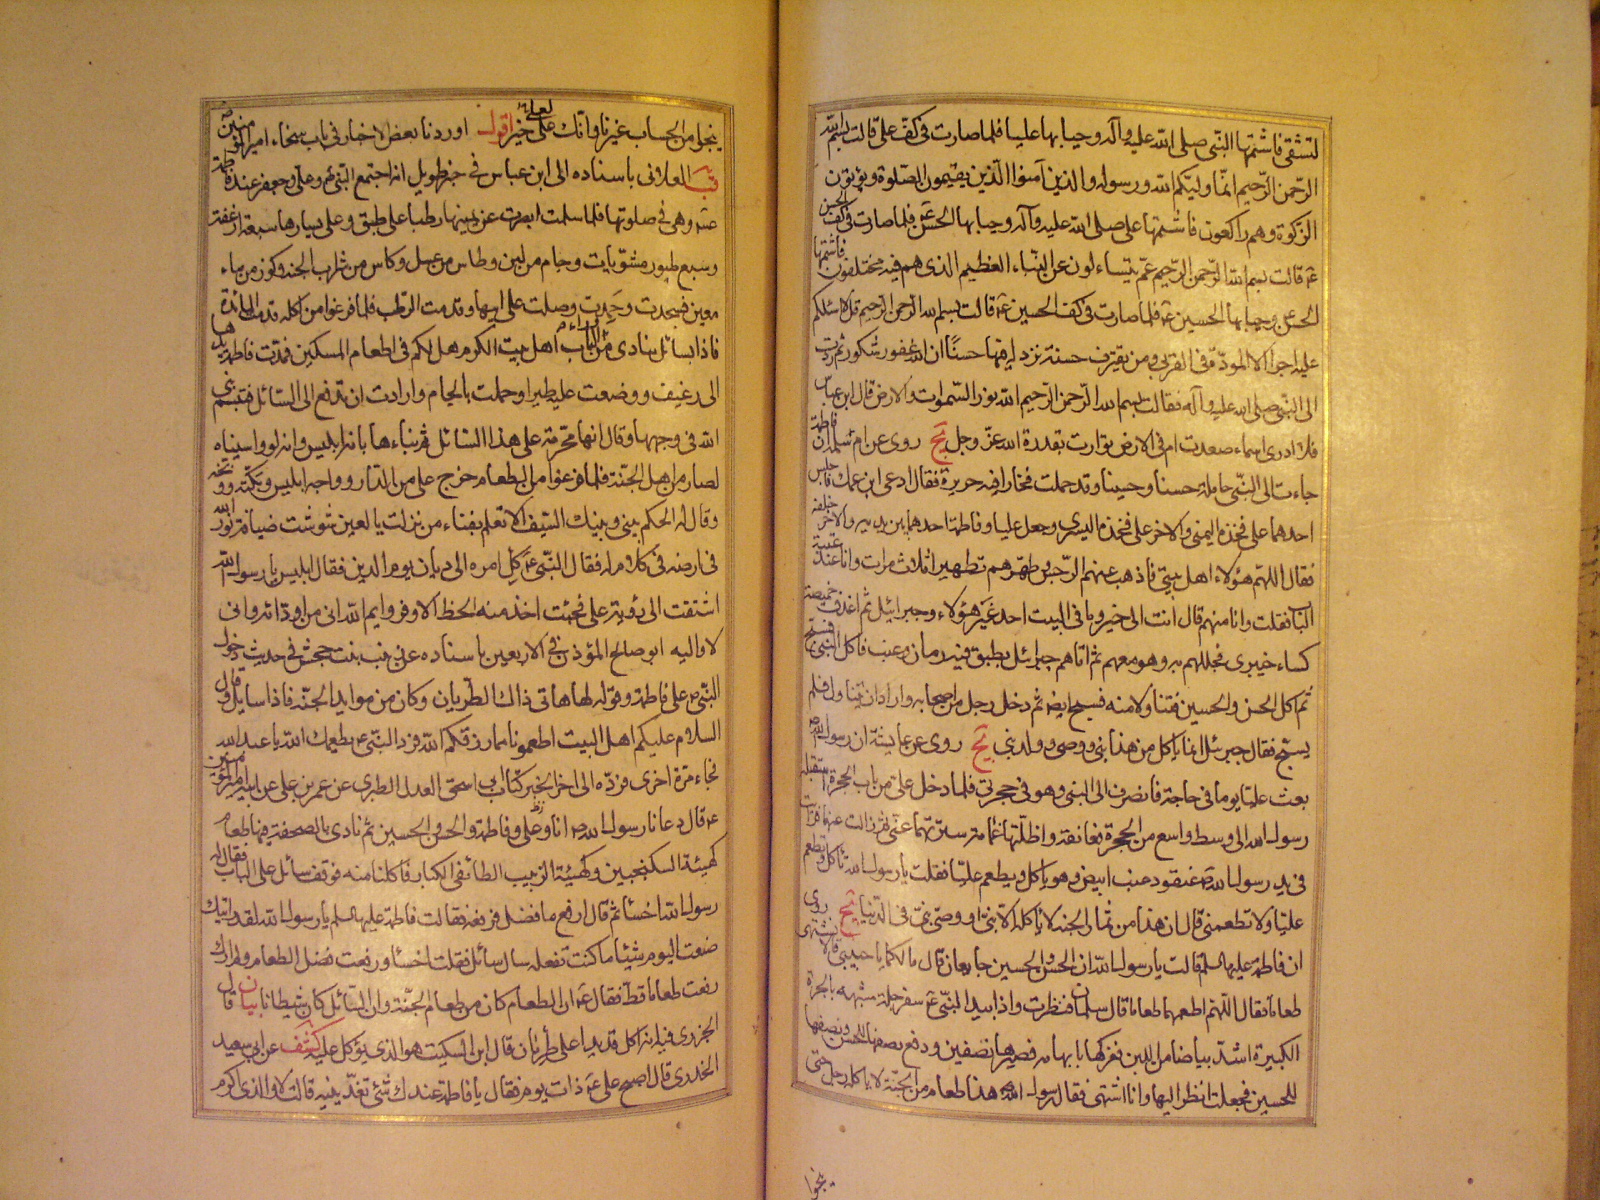 لتشقى فاشتمها النبى صلى الله عليه وآله وحيا بها عليا فلما صارت فى كف على قالت بسم الله
الرحمن الرحيم انما وليكم الله ورسوله والذين آمنوا الذين يقيمون الصلوة ويؤتون
الزكوة وهم راكعون فاشتمها على صلى الله عليه وآله وحيا بها الحسن ع فلما صارت فى كف الحسن
ع قالت بسم الله الرحمن الرحيم عم يتساءلون عن النباء العظيم الذى هم فيه مختلفون فاشتمها
الحسن ع وحيا بها الحسين ع فلما صارت فى كف الحسين ع قالت بسم الله الرحمن الرحيم قل لا اسئلكم
عليه اجرا الا المودة فى القربى ومن يقترف حسنة نزد له فيها حسنا ان الله غفور شكور ثم ردت
الى النبى صلى الله عليه وآله فقالت بسم الله الرحمن الرحيم الله نور السموات والارض قال ابن عباس
فلا ادرى اسماء صعدت ام فى الارض توارت بقدرة الله عز وجل يج روى عن ام سلمة ان فاطمة
جاءت الى النبى حاملة حسنا وحسينا وقد حملت فخارا فيه حريرة فقال ادعى ابن عمك فاجلس
احدهما على فخذه اليمنى والاخر على فخذه اليسرى وجعل عليا وفاطمة احدهما بين يديه والاخر خلفه
فقال اللهم هؤلاء اهل بيتى فاذهب عنهم الرجس وطهرهم تطهيرا ثلاث مرات وانا عند عتبة
الباب فقلت وانا منهم قال انت الى خير وما فى البيت احد غير هؤلاء وجبرائيل ثم اغدف خميصة
كساء خيبرى فجللهم به وهو معهم ثم اتاهم جبرائيل بطبق فيه رمان وعنب فاكل النبى فسبح
ثم اكل الحسن والحسين فتناولا منه فسبح ايضا ثم دخل رجل من اصحابه واراد ان يتناول فلم
يسبح فقال جبرئيل انما ياكل من هذا نبى ووصى وولد نبى يج روى عن عايشة ان رسول الله ص
بعث عليا يوما فى حاجة فانصرف الى النبى وهو فى حجرتى فلما دخل على من باب الحجرة استقبله
رسول الله الى وسط واسع من الحجرة فعانقه واظلتهما غمامة سترتهما عنى ثم زالت عنهما فرايت
فى يد رسول الله ص عنقود عنب ابيض وهو ياكل ويطعم عليا فقلت يا رسول الله تاكل وتطعم
عليا ولا تطعمنى قال ان هذا من ثمار الجنة لا ياكله الا نبى او وصى نبى فى الدنيا يج روى
ان فاطمة عليها السلم قالت يا رسول الله ان الحسن والحسين جايعان قال ما لكما يا حبيبى قالا نشتهى
طعاما فقال اللهم اطعمهما طعاما قال سلمان فنظرت واذا بيد النبى ع سفرجلة مشبهة بالجرة
الكبيرة اشد بياضا من اللبن ففركها بابهامه فصيرها نصفين ودفع نصفها للحسن ونصفها
للحسين فجعلت انظر اليها وانا اشتهى فقال رسول الله هذا طعام من الجنة لا ياكله رجل حتى
ينجوا
ينجوا من الحساب غيرنا وانك لعلى خير اقول اوردنا بعض الاخبار فى باب سخاء امير المؤمنين ص
قب العلانى باسناده الى ابن عباس فى خبر طويل انه اجتمع النبى ع وعلى وجعفر عند فاطمة
ع وهى فى صلوتها فلما سلمت ابصرت عن يمينها رطبا على طبق وعلى يسارها سبعة ارغفة
وسبع طيور مشويات وجام من لبن وطاس من عسل وكاس من شراب الجنة وكوز من ماء
معين فسجدت وحمدت وصلت على ابيها وقدمت الرطب فلما فرغوا من اكله قدمت المائدة
فاذا بسائل ينادى من وراء الباب اهل بيت الكرم هل لكم فى اطعام المسكين فمدت فاطمة يدها
الى رغيف ووضعت عليه طيرا وحملت بالجام وارادت ان تدفع الى السائل فتبسم النبى
الله فى وجهها وقال انها محرمة على هذا السائل ثم نباءها بانه ابليس وانه لو واسيناه
لصار من اهل الجنة فلما فرغوا من الطعام خرج على من الدار وواجه ابليس وبكته ووبخه
وقال له الحكم بينى وبينك السيف الا تعلم بفناء من نزلت يا لعين شوشت ضيافة نور الله
فى ارضه فى كلام له فقال النبى ع كل امره الى ديان يوم الدين فقال ابليس يا رسول الله
اشتقت الى رؤية على فجئت اخذ منه الحظ الاوفر وايم الله انى من اودائه وانى
لاواليه ابو صالح المؤذن فى الاربعين باسناده عن زينب بنت جحش فى حديث دخول
النبى ص على فاطمة وقوله لها هاتى ذاك الطريان وكان من موايد الجنة فاذا سايل قال
السلام عليكم اهل البيت اطعمونا مما رزقكم الله فرد النبى ع يطعمك الله يا عبد الله
فجاء مرة اخرى فرده الى اخر الخبر كتاب ابى اسحق العدل الطبرى عن عمر بن على عن ابيه امير المؤمنين
ع قال دعانا رسول الله ص انا وعلى وفاطمة والحسن والحسين ثم نادى بالصحفة فيها طعام
كهيئة السكنجبين وكهيئة الزبيب الطائفى الكبار فاكلنا منه فوقف سائل على الباب فقال له
رسول الله اخسا ثم قال ارفع ما فضل فرفعه فقالت فاطمة عليها السلم يا رسول الله لقد رايتك
صنعت اليوم شيئا ما كنت تفعله سال سائل فقلت اخسا ورفعت فضل الطعام ولم ارك
رفعت طعاما قط فقال ع ان الطعام كان من طعام الجنة وان السائل كان شيطانا بيان قال
الجزرى فيه انه اكل قديدا على طريان قال ابن السكيت هو الذى يؤكل عليه كشف عن ابى سعيد
الخدرى قال اصبح على ع ذات يوم فقال يا فاطمة عندك شئ تغدينيه قالت لا والذى اكرم